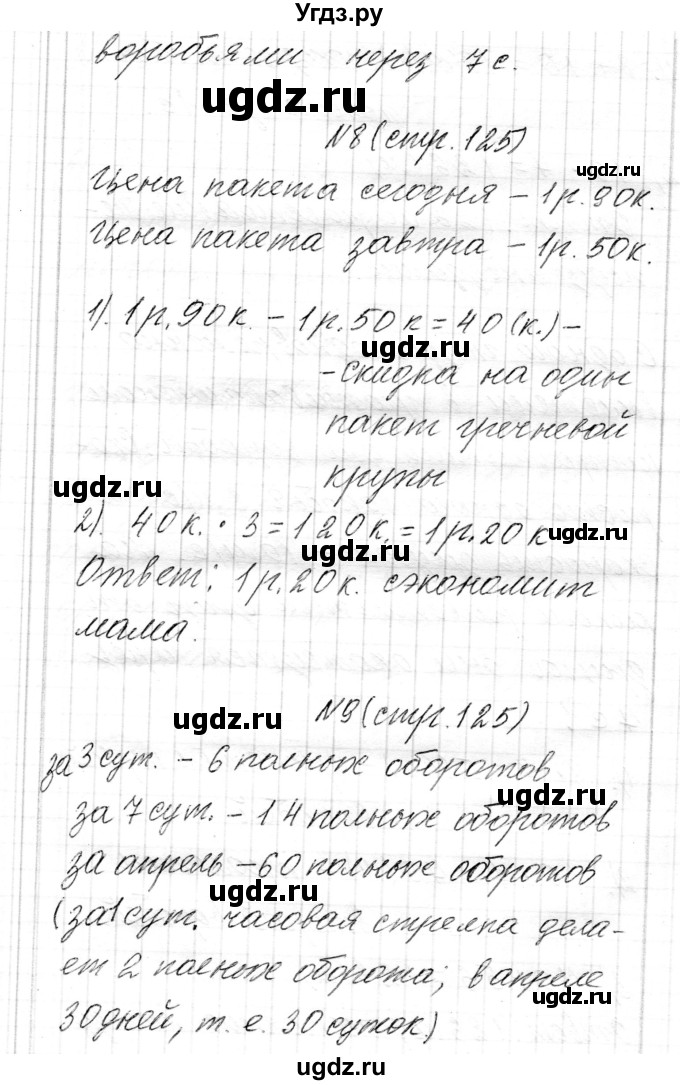 Угдз.ру
воробьями через 7с.
ugdz.ru
№8(стр.125)
ugdz.ru
Цена пакета сегодня – 1р.90к.
Цена пакета завтра – 1р.50к.
ugdz.ru
1). 1р.90к. – 1р.50к = 40(к.) –
ugdz.ru
-скидка на один
пакет гречневой
крупы
ugdz.ru
2). 40к. · 3 = 120к. = 1р.20к
ugdz.ru
Ответ: 1р.20к. сэкономит
мама.
№9(стр.125)
ugdz.ru
за 3 сут. – 6 полных оборотов
ugdz.ru
за 7 сут. – 14 полных оборотов
за апрель – 60 полных оборотов
ugdz.ru
(за 1 сут. часовая стрелка дела-
ет 2 полных оборота; в апреле
ugdz.ru
30 дней, т. е. 30 суток)
ugdz.ru